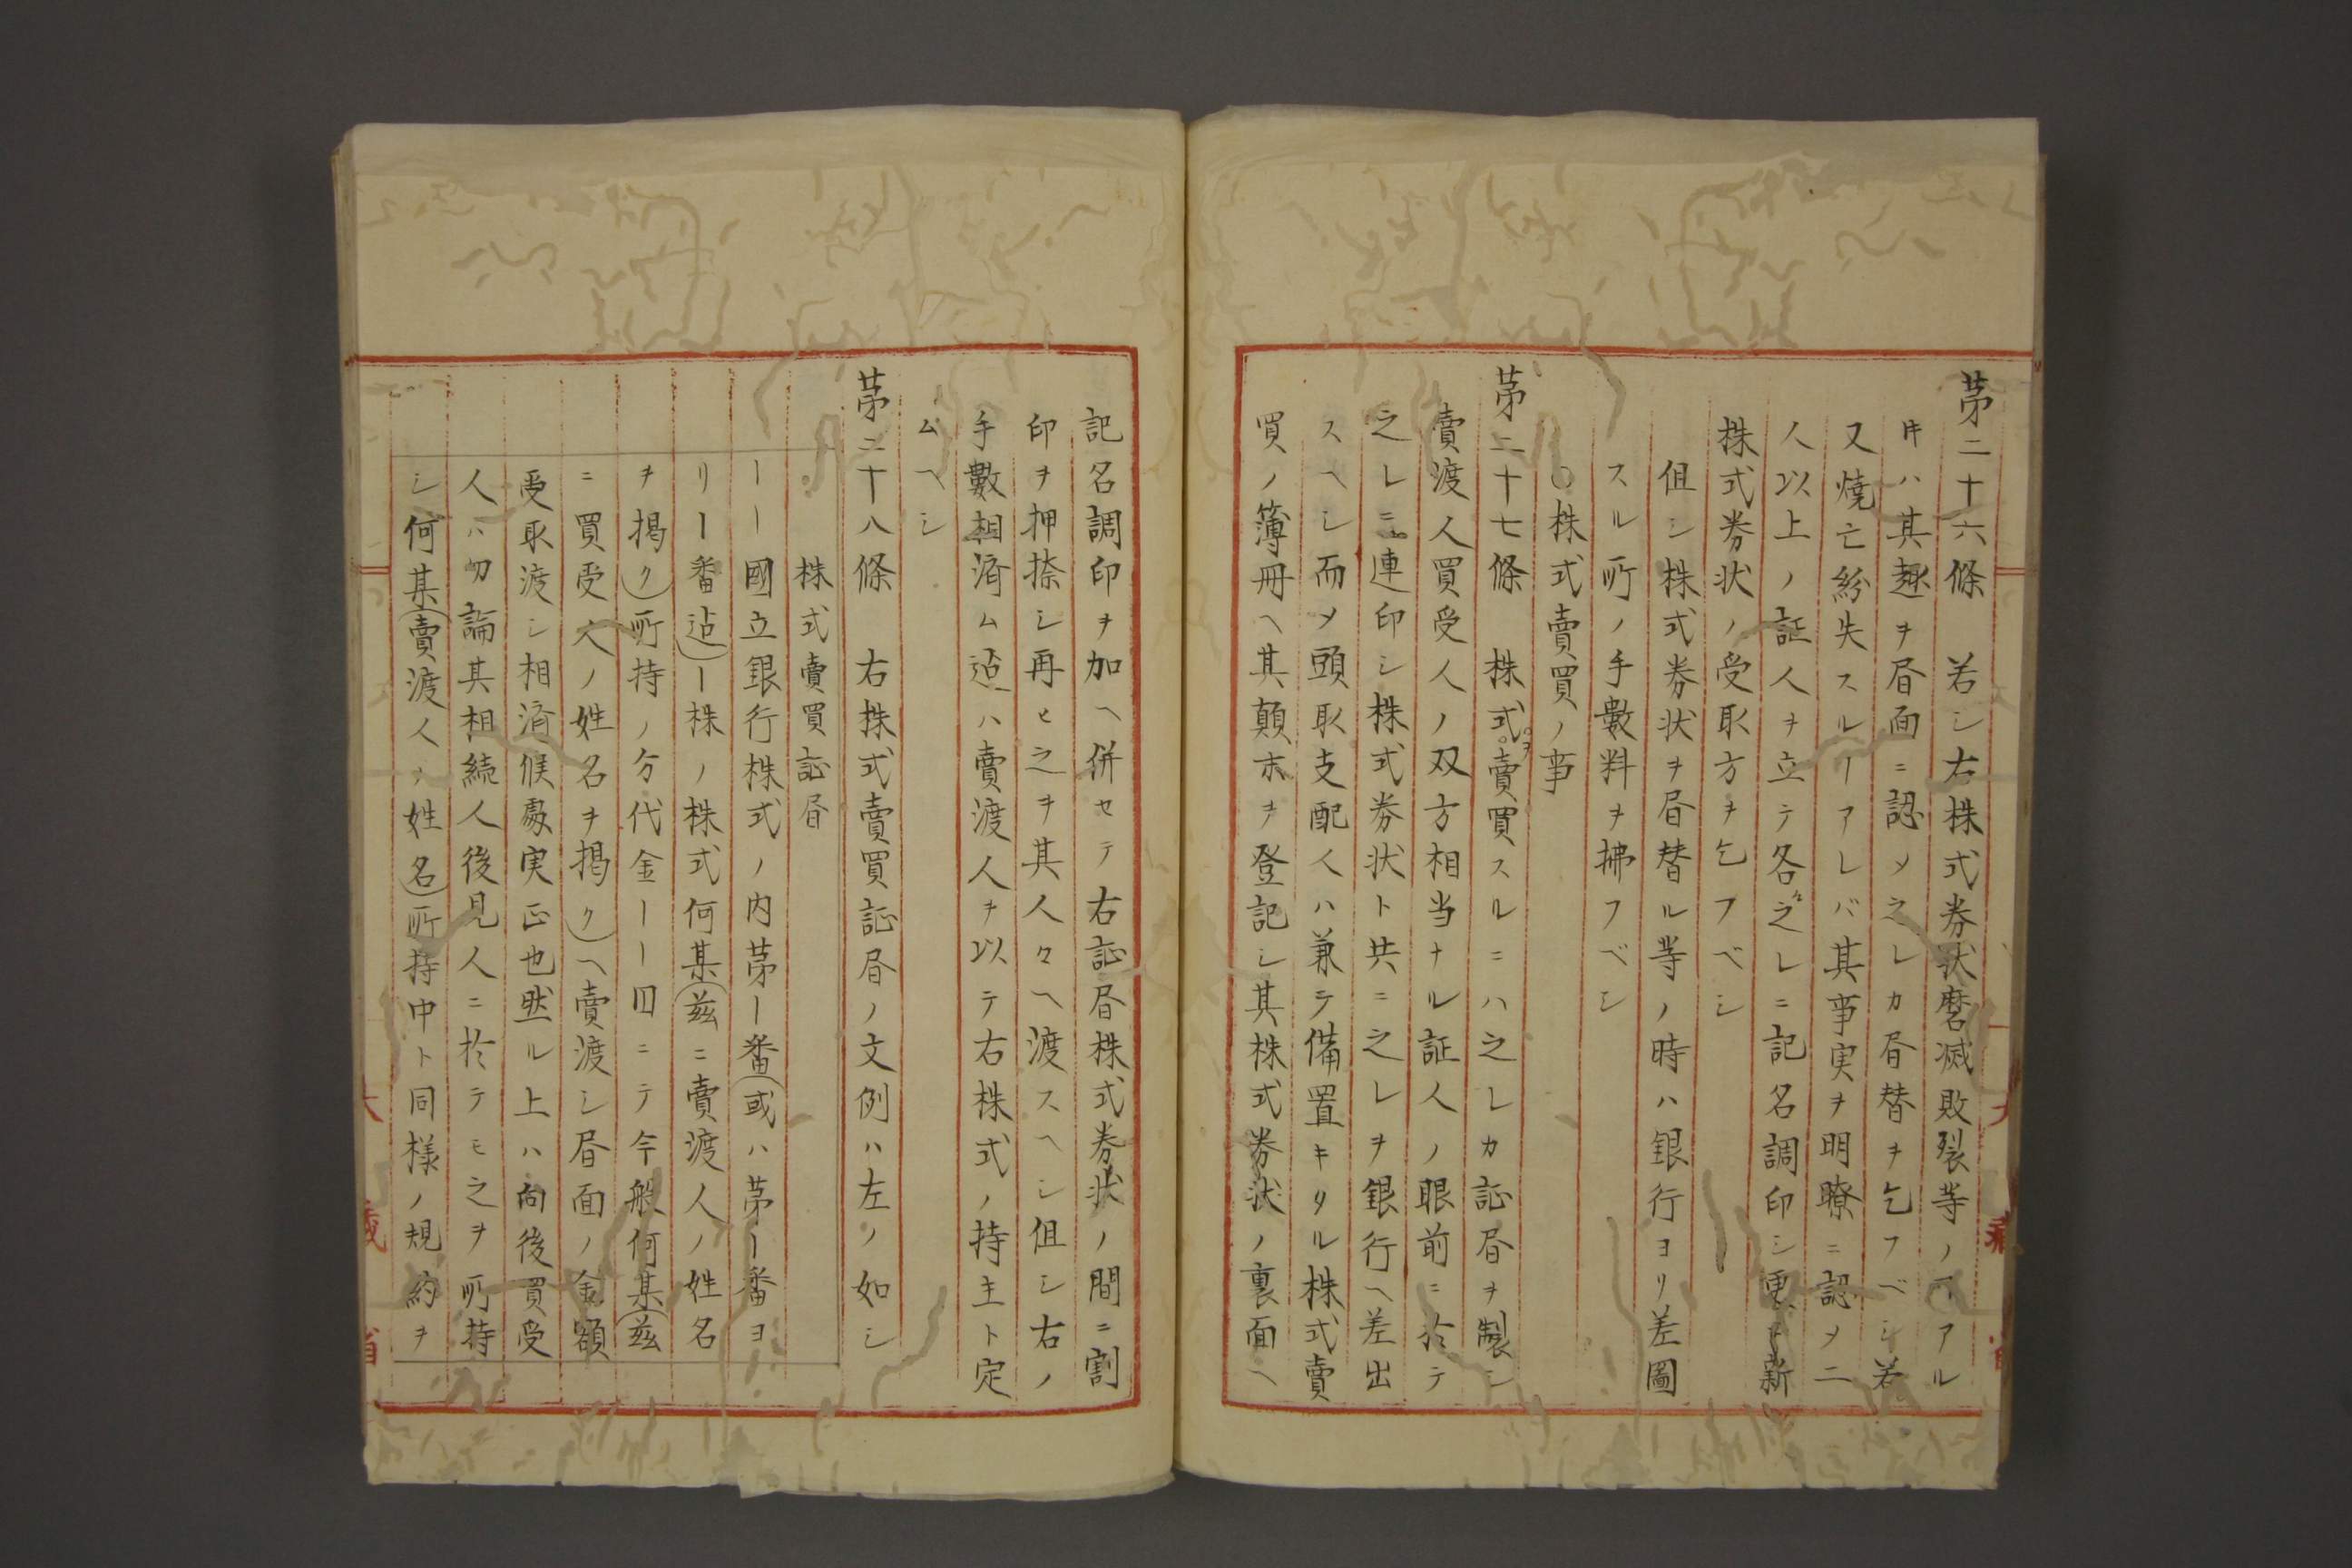 第二十六條　若シ右株式券状磨滅敗裂等ノヿアル
𪜈ハ其趣ヲ書面ニ認メ之レカ書替ヲ乞フベシ若
又燒亡紛失スルヿアレバ其事実ヲ明瞭ニ認メ二
人以上ノ証人ヲ立テ各々之レニ記名調印シ更ニ新
株式券状ノ受取方ヲ乞フベシ
但シ株式券状ヲ書替ル等ノ時ハ銀行ヨリ差圖
スル所ノ手數料ヲ拂フベシ
○株式賣買ノ事
第二十七條　株式ヲ賣買スルニハ之レカ証書ヲ製シ
賣渡人買受人ノ双方相当ナル証人ノ眼前ニ於テ
之レニ連印シ株式券状ト共ニ之レヲ銀行ヘ差出
スヘシ而メ頭取支配人ハ兼テ備置キタル株式賣
買ノ簿冊ヘ其顛末ヲ登記シ其株式券状ノ裏面ヘ
記名調印ヲ加ヘ併セテ右証書株式券状ノ間ニ割
印ヲ押捺シ再ヒ之ヲ其人々ヘ渡スヘシ但シ右ノ
手數相済ム迠ハ賣渡人ヲ以テ右株式ノ持主ト定
ムヘシ
第二十八條　右株式賣買証書ノ文例ハ左ノ如シ
株式賣買証書
ーー國立銀行株式ノ内第ー番(或ハ第ー番ヨ
リー番迠)ー株ノ株式何某(茲ニ賣渡人ノ姓名
ヲ掲ク)所持ノ分代金ーー圓ニテ今般何某(茲
ニ買受人ノ姓名ヲ掲ク)ヘ賣渡シ書面ノ金額
受取渡シ相済候處実正也然ル上ハ向後買受
人ハ勿論其相続人後見人ニ於テモ之ヲ所持
シ何某(賣渡人ノ姓名)所持中ト同様ノ規約ヲ
大藏省